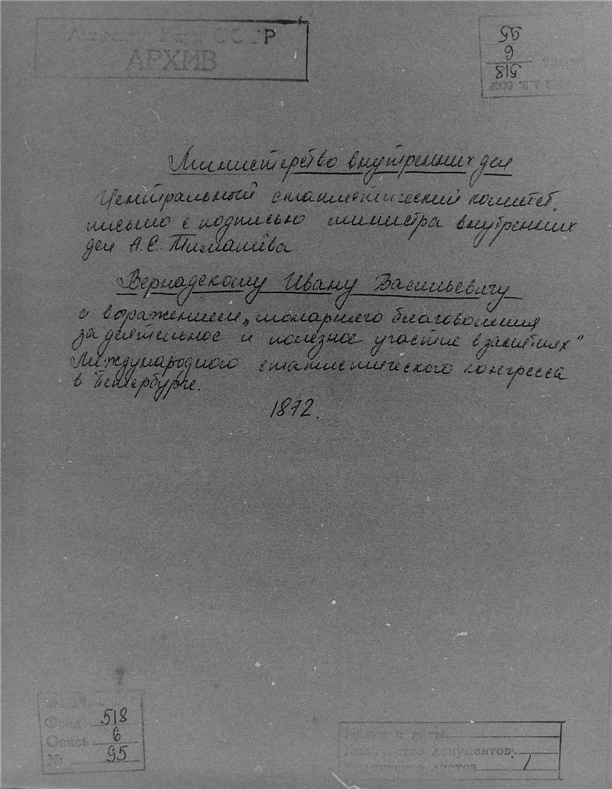 СССР
АРХИВ
518
6
95
Министерство внутренних дел
Центральный статистический комитет,
письмо с подписью министра внутренних
дел А.Е. Тимашева
Вернадскому Ивану Васильевичу
с выражением „монаршего благоволения
за деятельное и полезное участие в занятиях"
Международного статистического конгресса
в Петербурге.
1872.
Фонд 518
Опись 6
№ 95
Крайн с даты
Количество документов
Количество листов 1